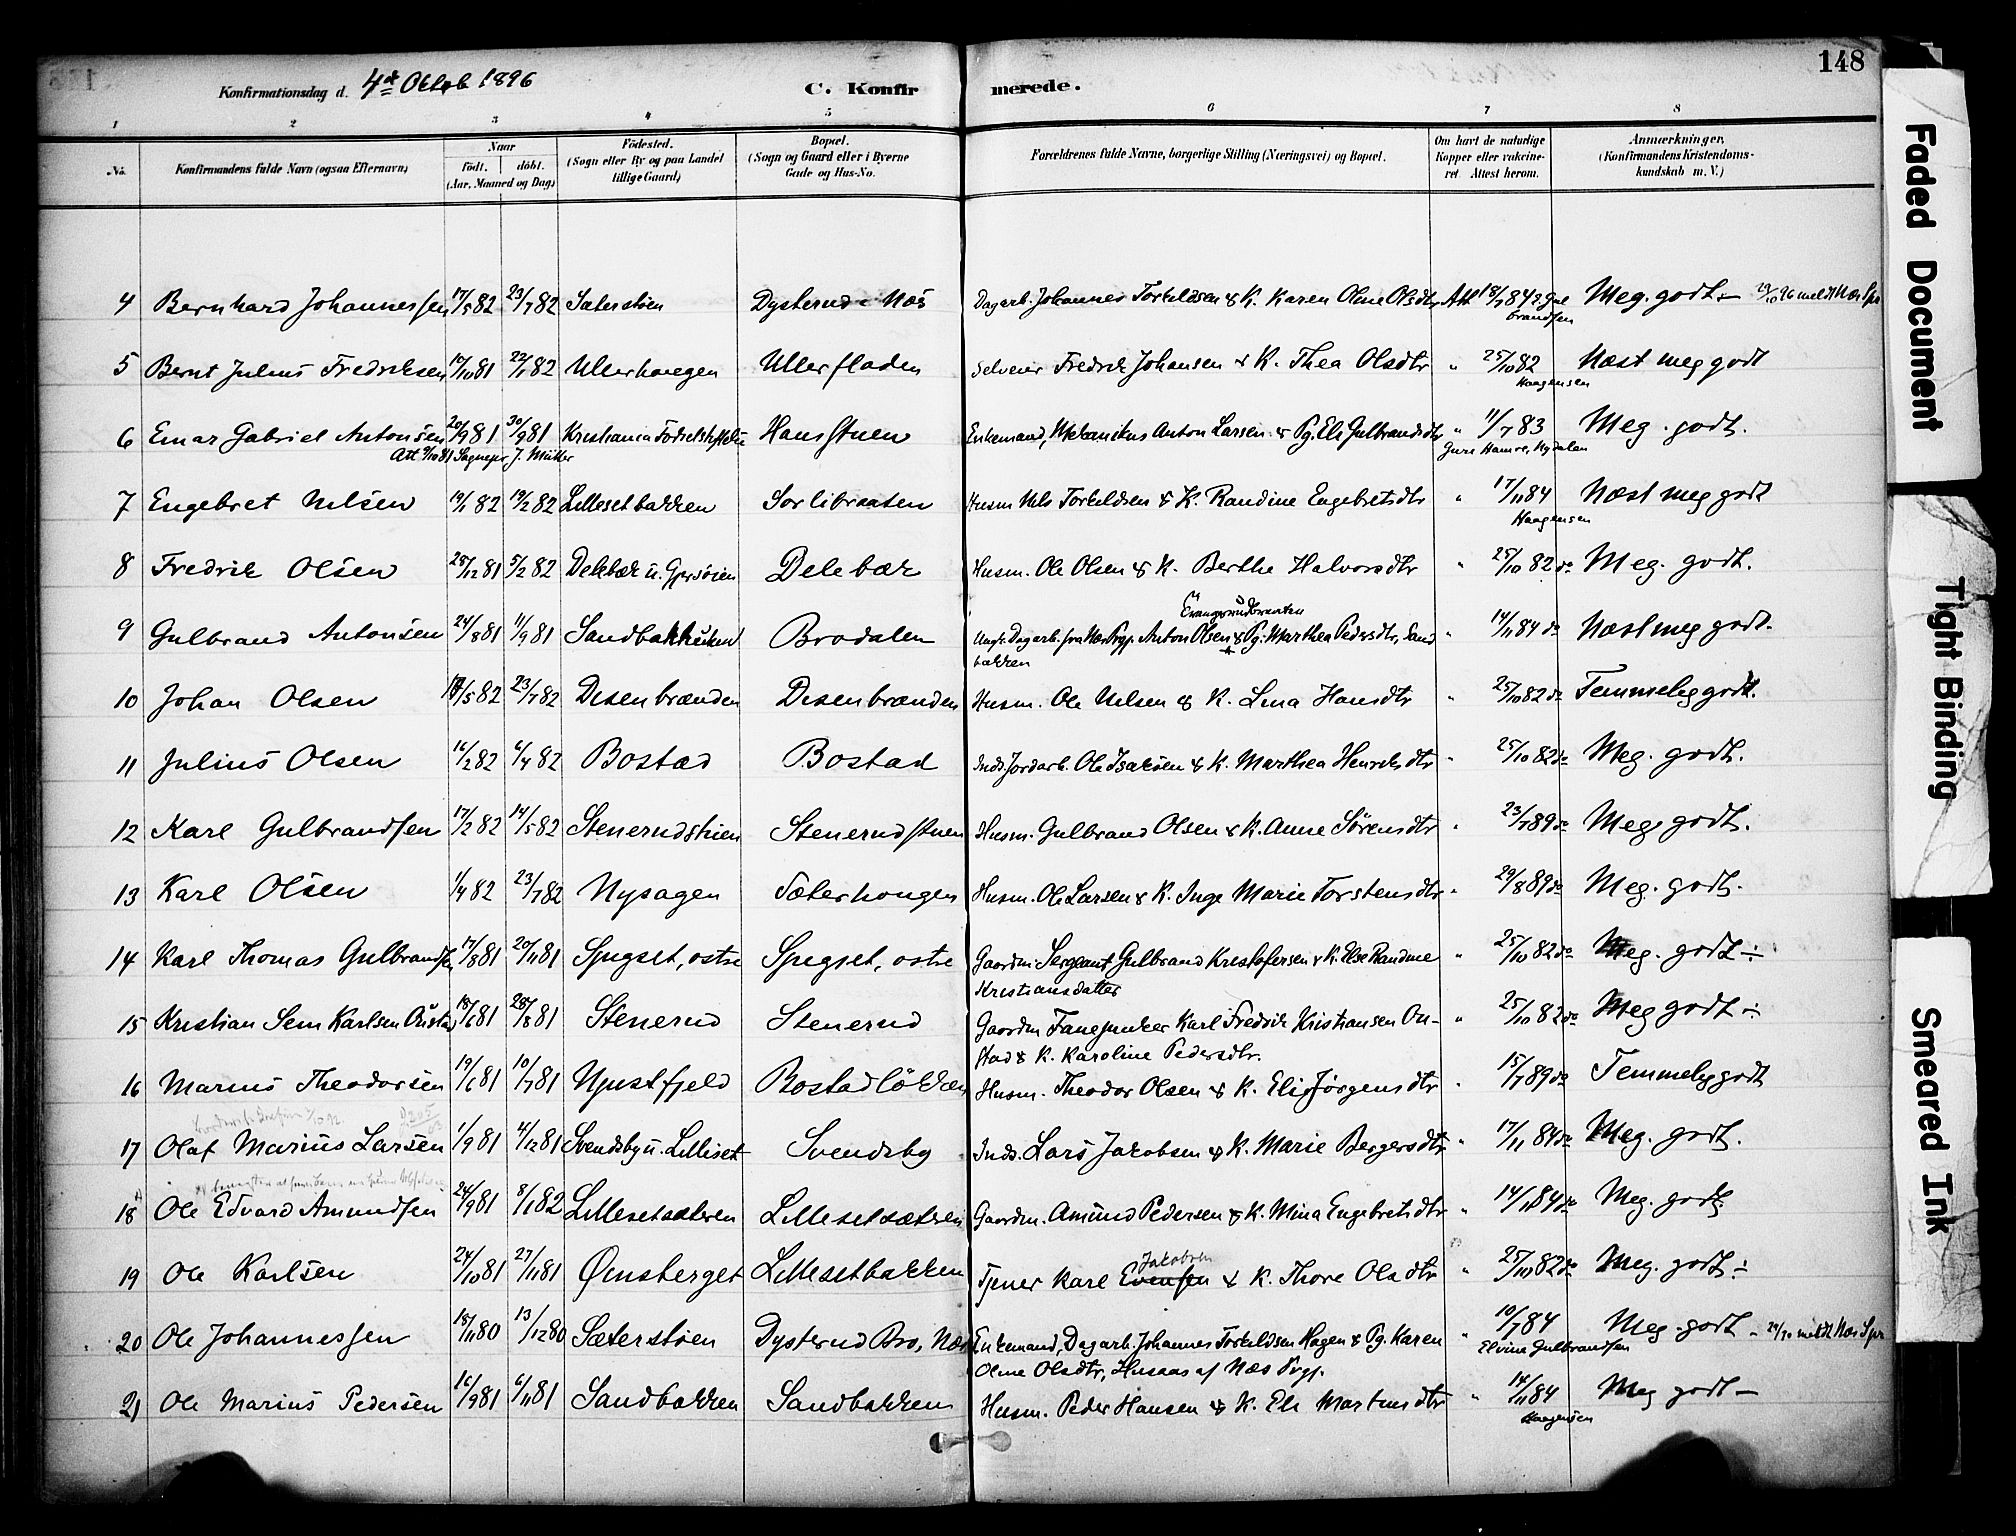 148
Konfirmationsdag d. 4de Oktob 1896 C. Konfirmerede.
1 2 3 4 5 6 7 8
No. Konfirmandens fulde Navn (ogsaa Efternavn) Naar født. døbt. (Aar, Maaned og Dag) Fødested. (Sogn eller By og paa Landet tillige Gaard) Bopæl. (Sogn og Gaard eller i Byerne Gade og Hus-No. Forældrenes fulde Navne, borgerlige Stilling (Næringsvei) og Bopæl. Om havt de naturlige Kopper eller vakcineret. Attest herom. Anmærkninger, (Konfirmandens Kristendomskundskab m. V.)
4 Bernhard Johannessen 17/5 82 23/7 82 Sæterstøen Dysterud i Næs Dagarb. Johannes Torkildsen & K. Karen Oline Olsdtr Att 18/7 84 Meg. godt – meldt Næs Spr
brandsen
5 Bernt Julius Fredriksen 17/10 81 22/1 82 Ullerhaugen Ullerfladen Selveier Fredrik Johansen & K. Thea Olsdtr " 25/10 82 Næst meg godt
Haagensen
6 Einar Gabriel Antonsen 20/9 81 30/9 81 Kristiania Fødselsstiftelse Hansstuen Enkemand, Mekanikus Anton Larsen & Pg. Eli Gulbrandsdtr " 11/7 83 Meg. godt.
Att 9/10 81 Sognepr. J. Müller Hamre, Nydalen
7 Engebret Nilsen 19/1 82 19/2 82 Lillesetbakken Sorlibraaten Husm Nils Torkildsen & K. Randine Engebretsdtr " 17/11 84 Næst meg godt
Haagensen
8 Fredrik Olsen 28/12 81 5/2 82 Delebæk u. Delebæk Husm. Ole Olsen & K. Berthe Halvorsdtr " 25/10 82 do Meg. godt.
9 Gulbrand Antonsen 24/8 81 11/9 81 Sandbakken Brodalen Ungk. Dagarb. fra Næs Prgj. Anton Olsen & Pg. Marthea Pedersdtr, Sandbakken " 14/11 84 do Næst meg godt.
10 Johan Olsen 17/5 82 23/7 82 Disenbrænden Disenbrænden Husm. Ole Nilsen & K. Lina Hansdtr " 25/10 82 do Temmelig godt.
11 Julius Olsen 16/2 82 6/4 82 Bostad Bostad Inds. Jordarb. Ole Isaksen & K. Marthea Henriksdtr " 25/10 82 do Meg. godt.
12 Karl Gulbrandsen 17/2 82 14/5 82 Stenerudstuen Stenerudstuen Husm. Gulbrand Olsen & K. Anne Sørensdtr " 23/7 89 do Meg godt.
13 Karl Olsen 1/4 82 23/7 82 Nysagen Sæterhougen Husm. Ole Larsen & K. Inge Marie Torstensdtr " 29/8 89 do Meg. godt.
14 Karl Thomas Gulbrandsen 17/8 81 20/11 81 Spigset, østre Spigset, østre Gaardm. Sergeant Gulbrand Kristofersen & K. Else Randine " 25/10 82 do Meg. godt ÷
Kristiansdatter
15 Kristian Sem Karlsen Onstad 18/6 81 28/8 81 Stenerud Stenerud Gaardm Fanejunker Karl Fredrik Kristiansen On- " 25/10 82 do Meg godt ÷
stad & K. Karoline Pedersdtr.
16 Marius Theodorsen 19/6 81 10/7 81 Nystfjeld Bostadløkken Husm. Theodor Olsen & K. Elise Jørgensdtr " 15/7 89 do Temmelig godt
17 Olaf Marius Larsen 1/9 81 4/12 81 Svendsby u. Lilliset Svendsby Inds. Lars Jakobsen & K. Marie Bergersdtr " 17/11 84 do Meg. godt.
18 Ole Edvard Amundsen 24/9 81 8/1 82 Lillesetsæteren Lillesetsæteren Gaardm. Amund Pedersen & K. Mina Engebretsdtr " 14/11 84 do Meg. godt
19 Ole Karlsen 24/10 81 27/11 81 Ørnsberget Lillesetbakken Tjener Karl Evensen Jakobsen & K. Thore Olsdtr " 25/10 82 do Meg. godt ÷
20 Ole Johannessen 18/11 80 13/12 80 Sæterstøen Dysterud Bro, Næs Enkemand, Dagarb. Johannes Torkildsen Hagen & Pg. Karen " 10/7 84 Meg. godt – meldt Næs Spr
Oline Olsdtr, Husaas af Næs Prgj. Elvine Gulbrandsen
21 Ole Marius Pedersen 16/9 81 6/11 81 Sandbakken Sandbakken Husm. Peder Hansen & K. Eli Martinsdtr " 14/11 84 Meg godt –
Haagensen
Faded Document
Tight Binding
Smeared Ink